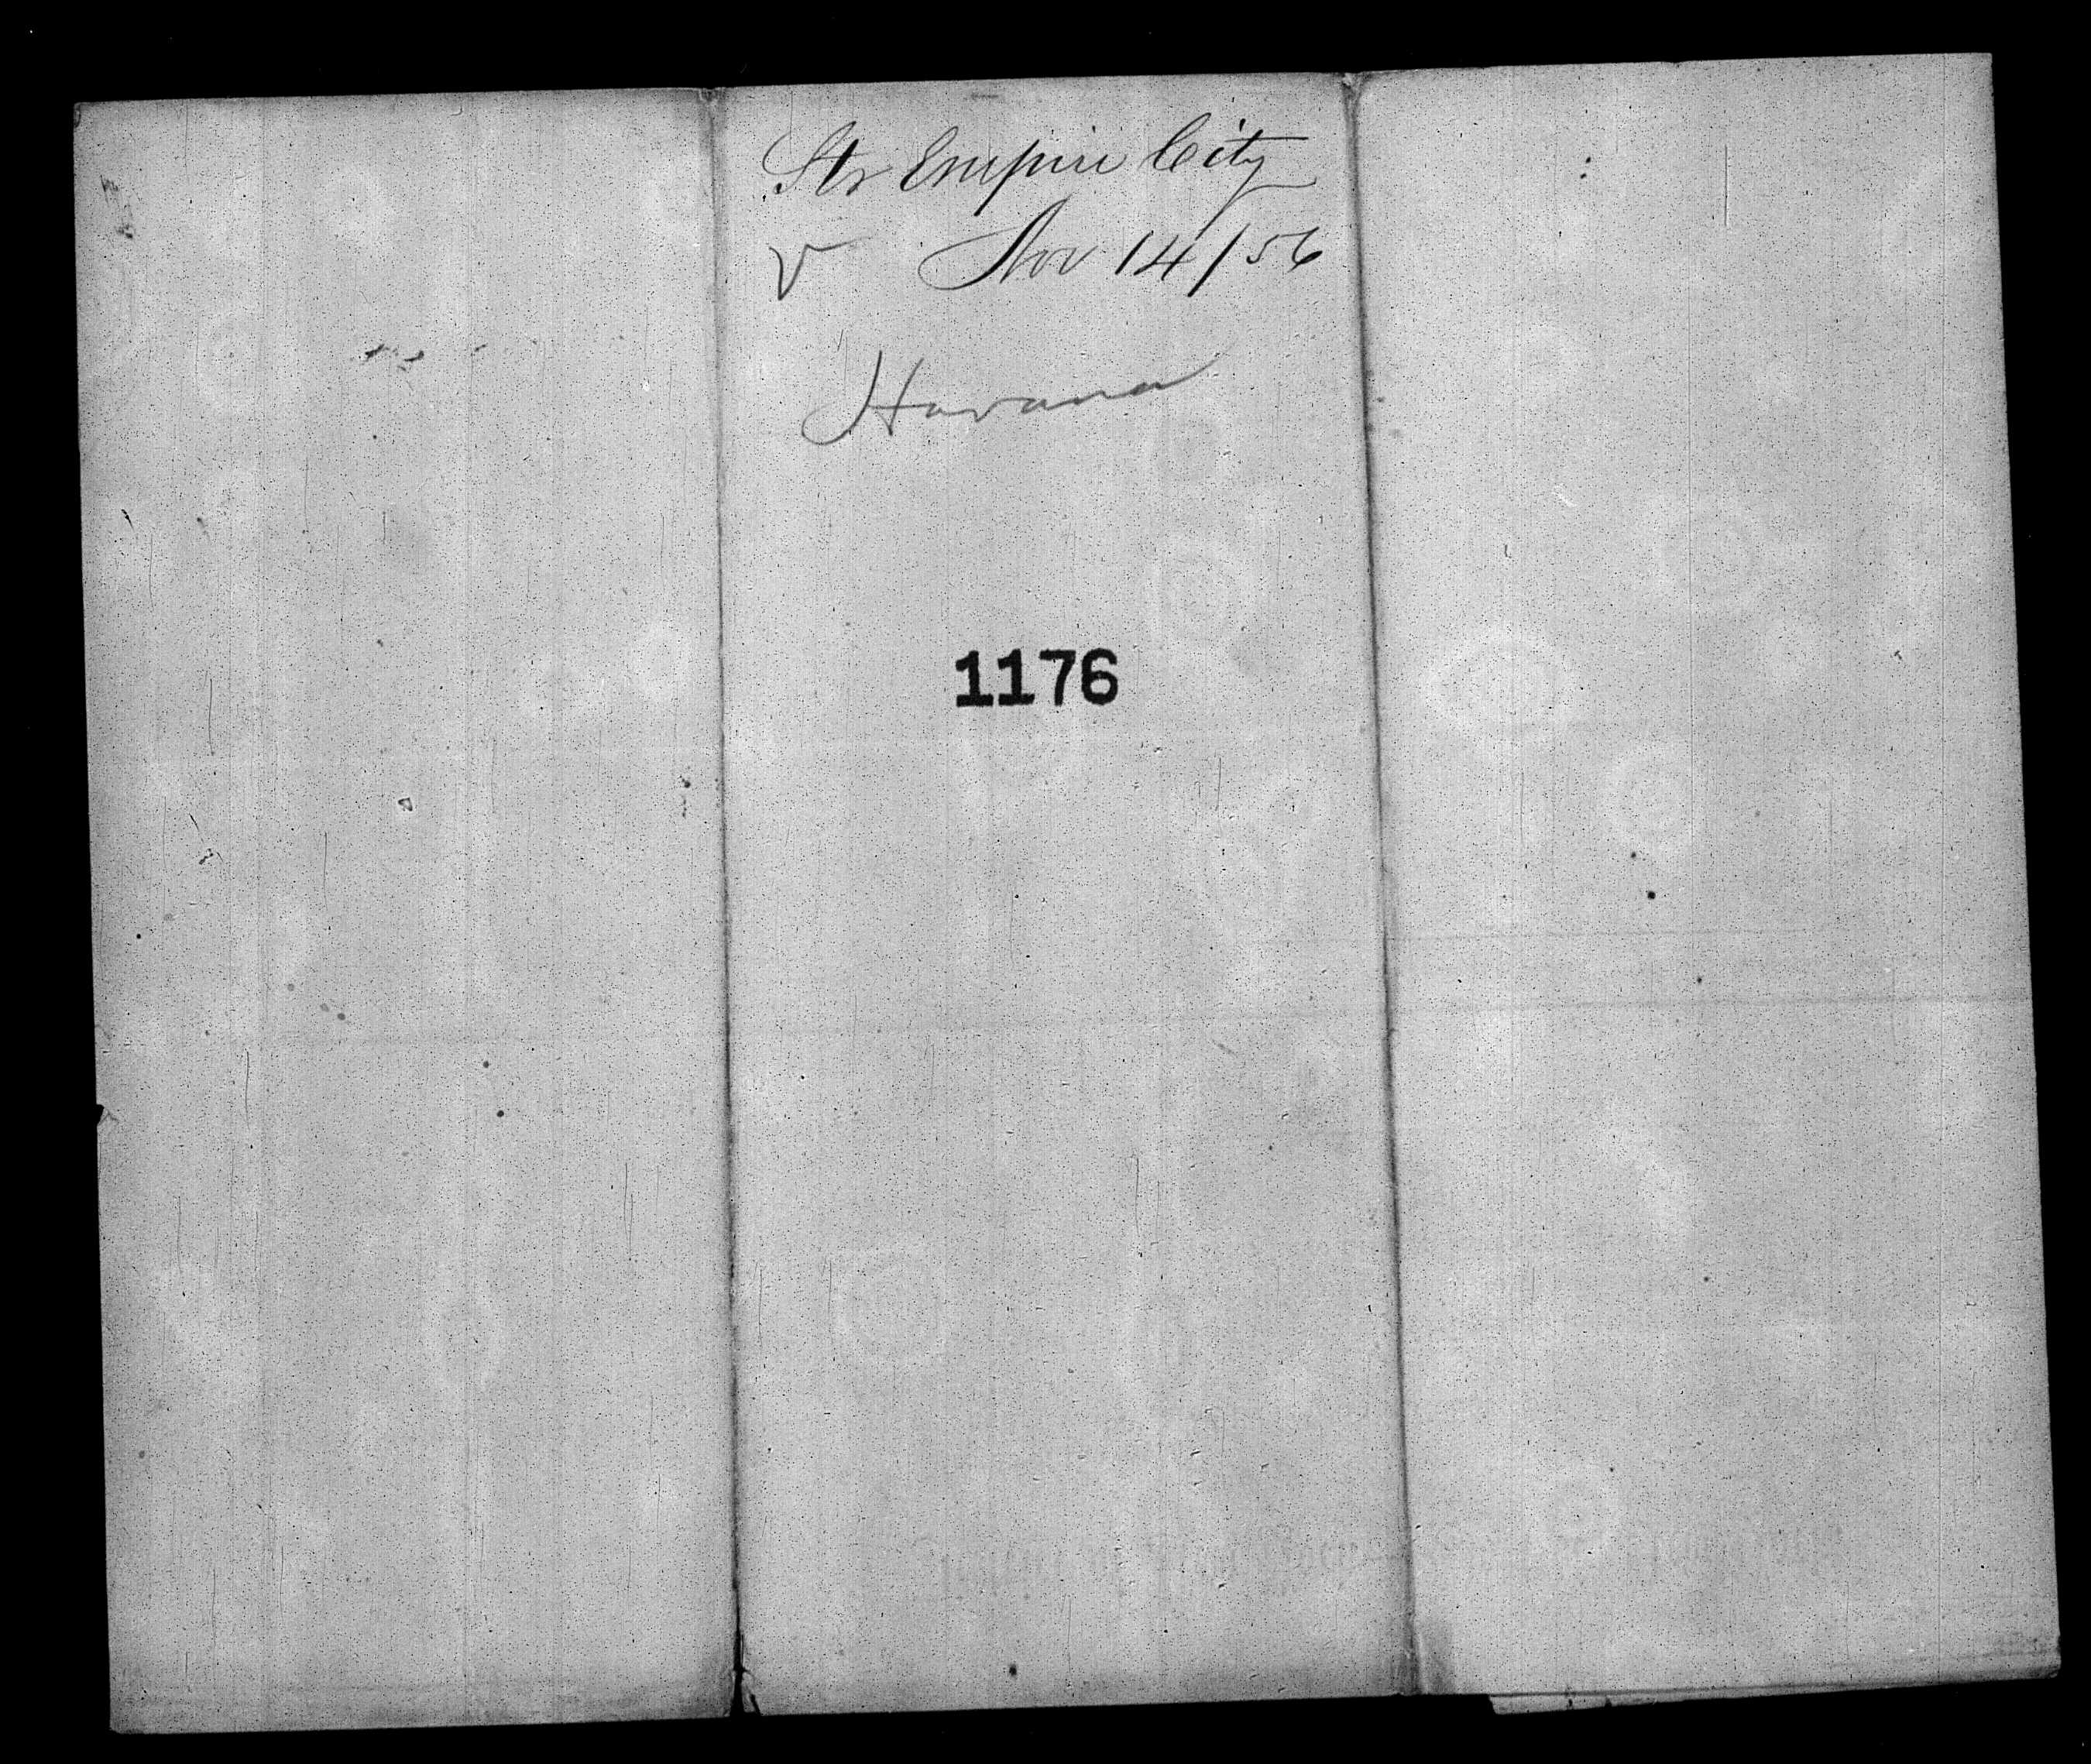 Str Empire City
V Nov 14/56
Havana
1176